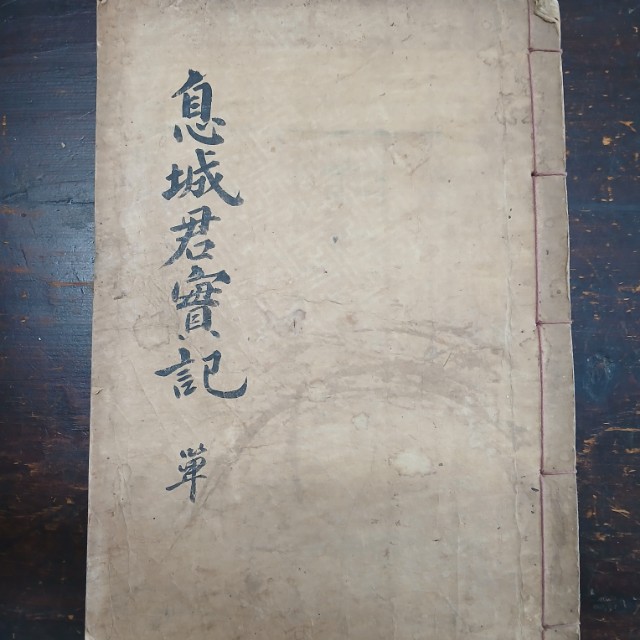 息城君實記
單